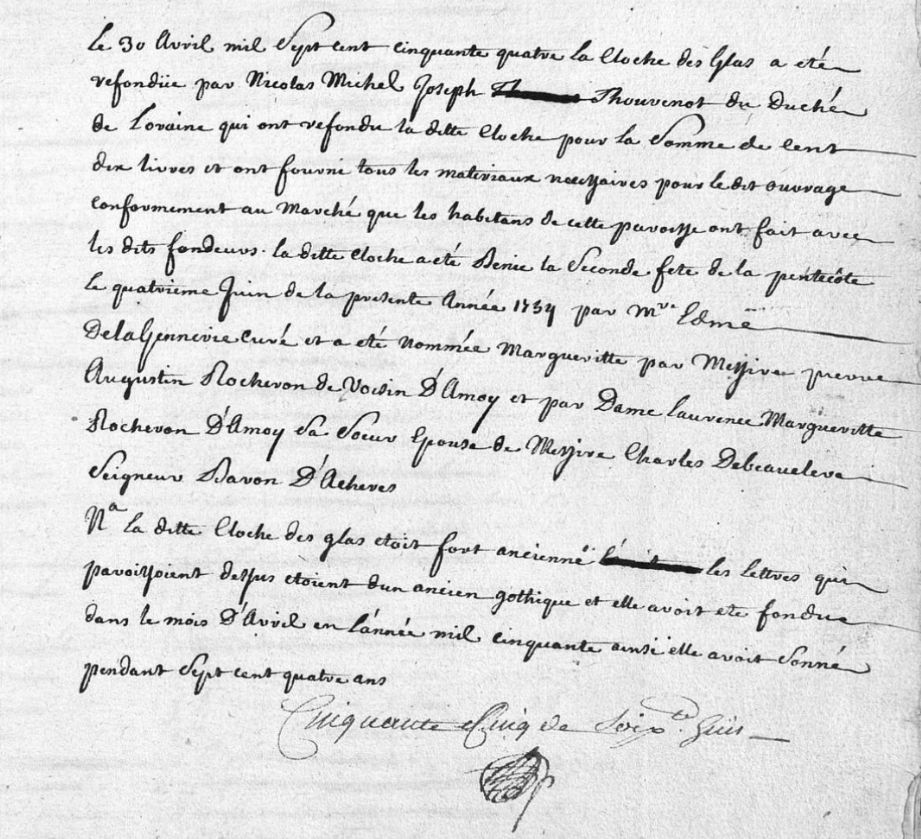 Le 30 Avril mil Sept cent cinquante quatre la Cloche des Glas a eté
refondüe par Nicolas Michel Joseph Thouvenot du Duché
de Loraine qui ont refondu la ditte Cloche pour la Somme de cent
dix livres et ont fourni tous les materiaux necessaires pour le dit ouvrage
conformement au Marché que les habitans de cette paroisse ont fait avec
les dits fondeurs. la ditte Cloche a eté Benie la Seconde fete de la pentecôte
le quatrieme Juin de la presente Année 1754 par Mre Edme
Delagennevrie Curé et a eté nommée Margueritte par Messire pierre
Augustin Rocheron de Voisin D'Amoy et par Dame Laurence Margueritte
Rocheron D'Amoy Sa Soeur Epouse de Messire Charles Debeauclere
Seigneur Baron D'Acheres
Na la ditte Cloche des glas etoit fort ancienne les lettres qui
paroissoient dessus etoient dun ancien gothique et elle avoit eté fondue
dans le mois D'Avril en L'année mil cinquante ainsi elle avoit Sonné
pendant Sept cent quatre ans
Cinquante Cinq de Soixte